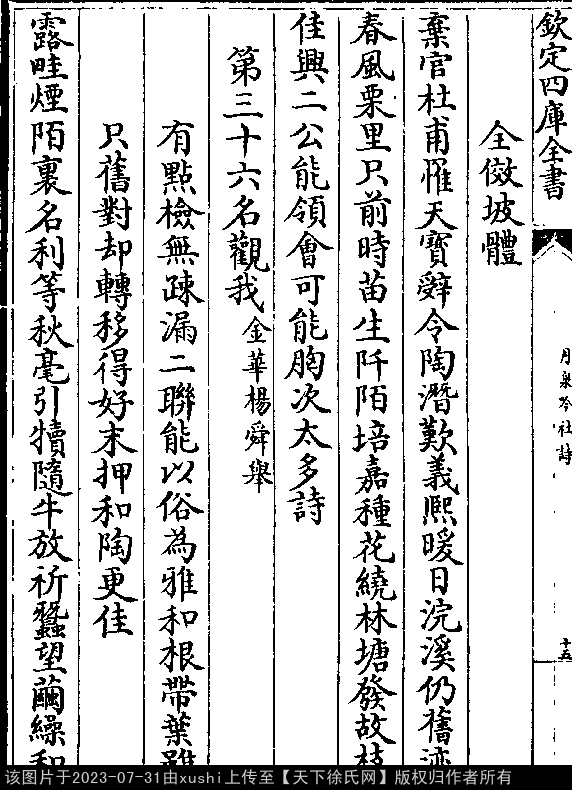 欽定四庫全書
月泉吟社詩
十五
全傚坡體
棄官杜甫惟天寶辭令陶潛歎義熙暖日浣溪仍舊
春風栗里只前時苗生阡陌培嘉種花繞林塘發故枝
佳興二公能領會可能胸次太多詩
第三十六名觀我金華楊舜舉
有點檢無疎漏二聯能以俗為雅和根帶葉雖
只舊對却轉移得好末押和陶更佳
露畦煙陌裏名利等秋毫引犢隨牛放祈蠶望繭繰和
该图片于2023-07-31由xushi上传至【天下徐氏网】版权归作者所有